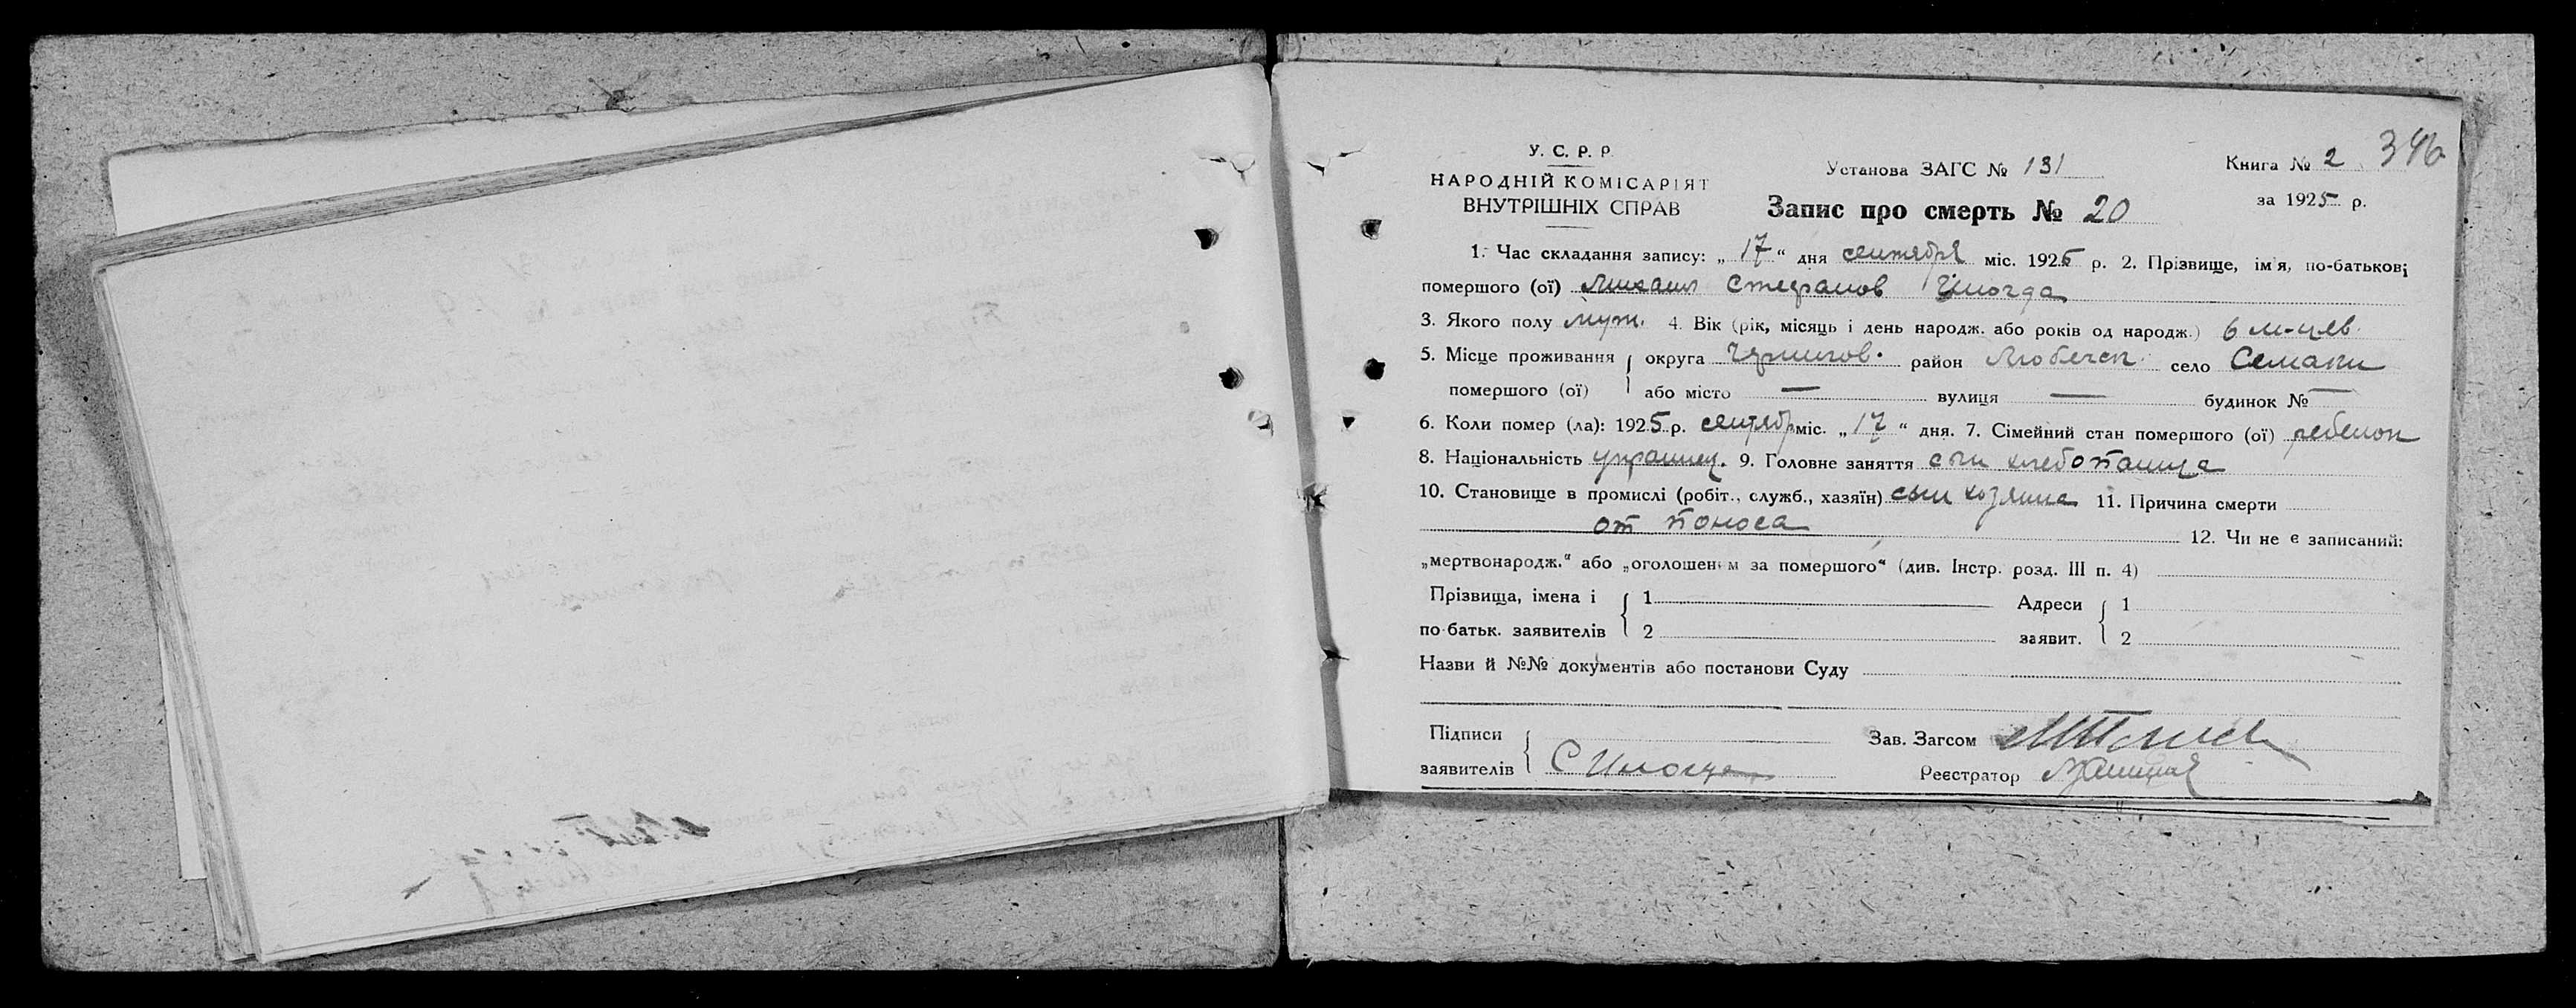 У. С. Р. Р.
НАРОДНІЙ КОМІСАРІЯТ
ВНУТРІШНІХ СПРАВ
Установа ЗАГС № 131
Запис про смерть № 20
Книга № 2 346
за 1925 р.
1. Час складання запису: „ 17 “ дня сентября міс. 1925 р. 2. Прізвище, ім'я, по-батькові
помершого (ої) Михаил Стефанов
3. Якого полу муж. 4. Вік (рік, місяць і день народж. або років од народж.) 6 м-цев
5. Місце проживання округа Чернигов. район Любечск. село Семаки
помершого (ої) або місто — вулиця — будинок № —
6. Коли помер (ла): 1925 р. сентябр міс. „ 17 “ дня. 7. Сімейний стан помершого (ої) ребенок
8. Національність украинец. 9. Головне заняття сын хлебопашца
10. Становище в промислі (робіт., служб., хазяїн) сын хозяина 11. Причина смерти
от поноса
12. Чи не є записаний:
„мертвонародж.“ або „оголошеним за помершого“ (див. Інстр. розд. III п. 4)
Прізвища, імена і 1 Адреси 1
по батьк. заявителів 2 заявит. 2
Назви й №№ документів або постанови Суду
Підписи Зав. Загсом
заявителів С Реєстратор